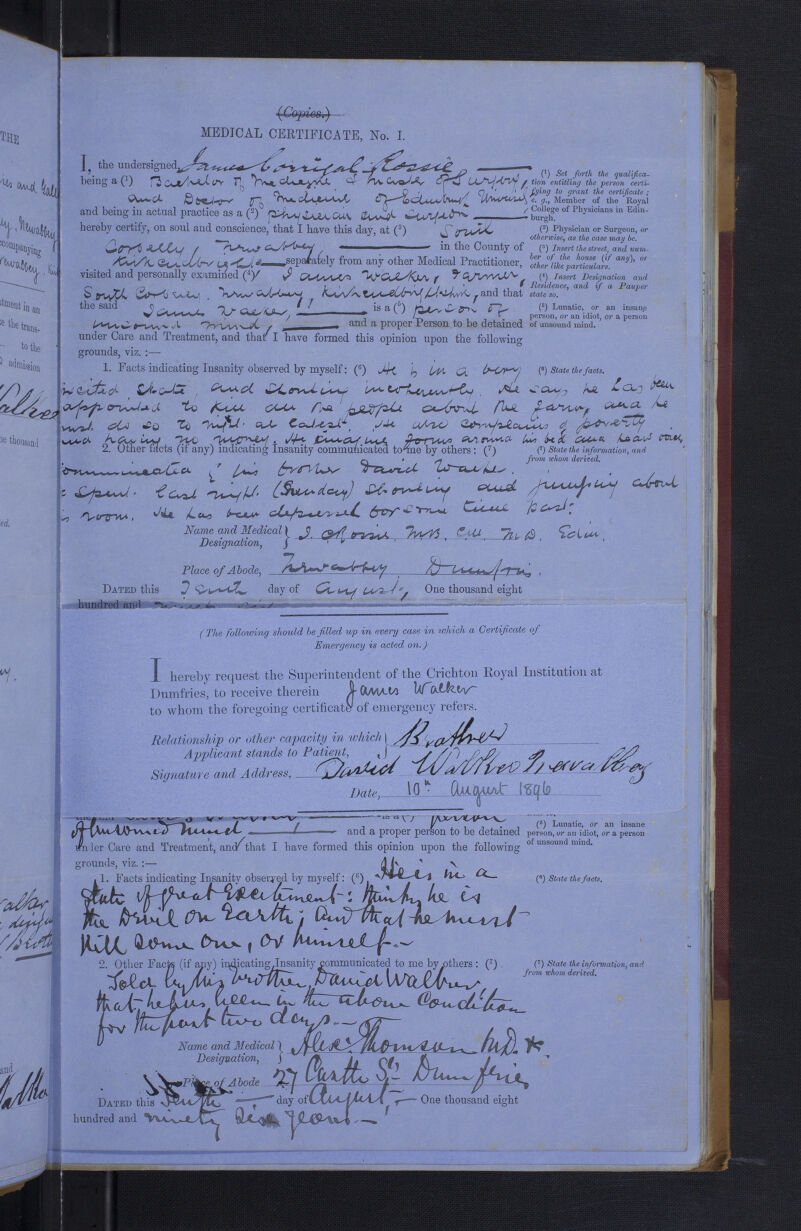 (Copies.)
MEDICAL CERTIFICATE, No. I.
I, the undersigned, James Corrigal Rossie
being a (¹) Bachelor of Medicine & Master of Surgery,
and Doctor of Medicine of Edinburgh University
and being in actual practice as a (²) Physician and Surgeon
hereby certify, on soul and conscience, that I have this day, at (³) South
Corbelly, Newabbey, in the County of
Kirkcudbright separately from any other Medical Practitioner,
visited and personally examined (⁴) James Walker, Farmer,
South Corbelly, Newabbey, Kirkcudbrightshire, and that
the said James Walker, is a (⁵) person of
unsound mind, and a proper Person to be detained
under Care and Treatment, and that I have formed this opinion upon the following
grounds, viz. :—
1. Facts indicating Insanity observed by myself: (⁶) He is in a very
excited state and shouting incoherently. He says he has been
appointed to kill all the people about the farm, and he
must do so to night at latest. He also complains of poverty
and having no money. He imagines forms around his bed and hears voices.
2. Other facts (if any) indicating Insanity communicated to me by others: (⁷)
Communicated by his brother David Walker.
He spent last night (Sunday) shouting and jumping about
his room. He has been depressed for some time past.
Name and Medical Designation, J. C. Rossie, M.B. C.M. M.D. Edin.
Place of Abode, Newabbey Dumfries.
DATED this Tenth day of August, One thousand eight
hundred and
(¹) Set forth the qualifica-
tion entitling the person certi-
fying to grant the certificate;
e. g., Member of the Royal
College of Physicians in Edin-
burgh.
(²) Physician or Surgeon, or
otherwise, as the case may be.
(³) Insert the street, and num-
ber of the house (if any), or
other like particulars.
(⁴) Insert Designation and
Residence, and if a Pauper
state so.
(⁵) Lunatic, or an insane
person, or an idiot, or a person
of unsound mind.
(⁶) State the facts.
(⁷) State the information, and
from whom derived.
(The following should be filled up in every case in which a Certificate of
Emergency is acted on.)
I hereby request the Superintendent of the Crichton Royal Institution at
Dumfries, to receive therein James Walker
to whom the foregoing certificate of emergency refers.
Relationship or other capacity in which
Applicant stands to Patient, Brother
Signature and Address, David Walker Newabbey
Date, 10th August 1896
is a (⁵) person
of unsound mind and a proper person to be detained
under Care and Treatment, and that I have formed this opinion upon the following
grounds, viz. :—
1. Facts indicating Insanity observed by myself: (⁶) He is in a
state of great Excitement: thinks he is
the Devil on Earth; and that he must
Kill some one, or himself.
2. Other Facts (if any) indicating Insanity communicated to me by others: (⁷)
Told by his brother, David Walker,
that he has been in the above Condition
for the past two days.
Name and Medical Designation, Alex. Thomson M.D. &.
Place of Abode 27 Castle St. Dumfries
DATED this Tenth day of August, One thousand eight
hundred and ninety six years
(⁵) Lunatic, or an insane
person, or an idiot, or a person
of unsound mind.
(⁶) State the facts.
(⁷) State the information, and
from whom derived.